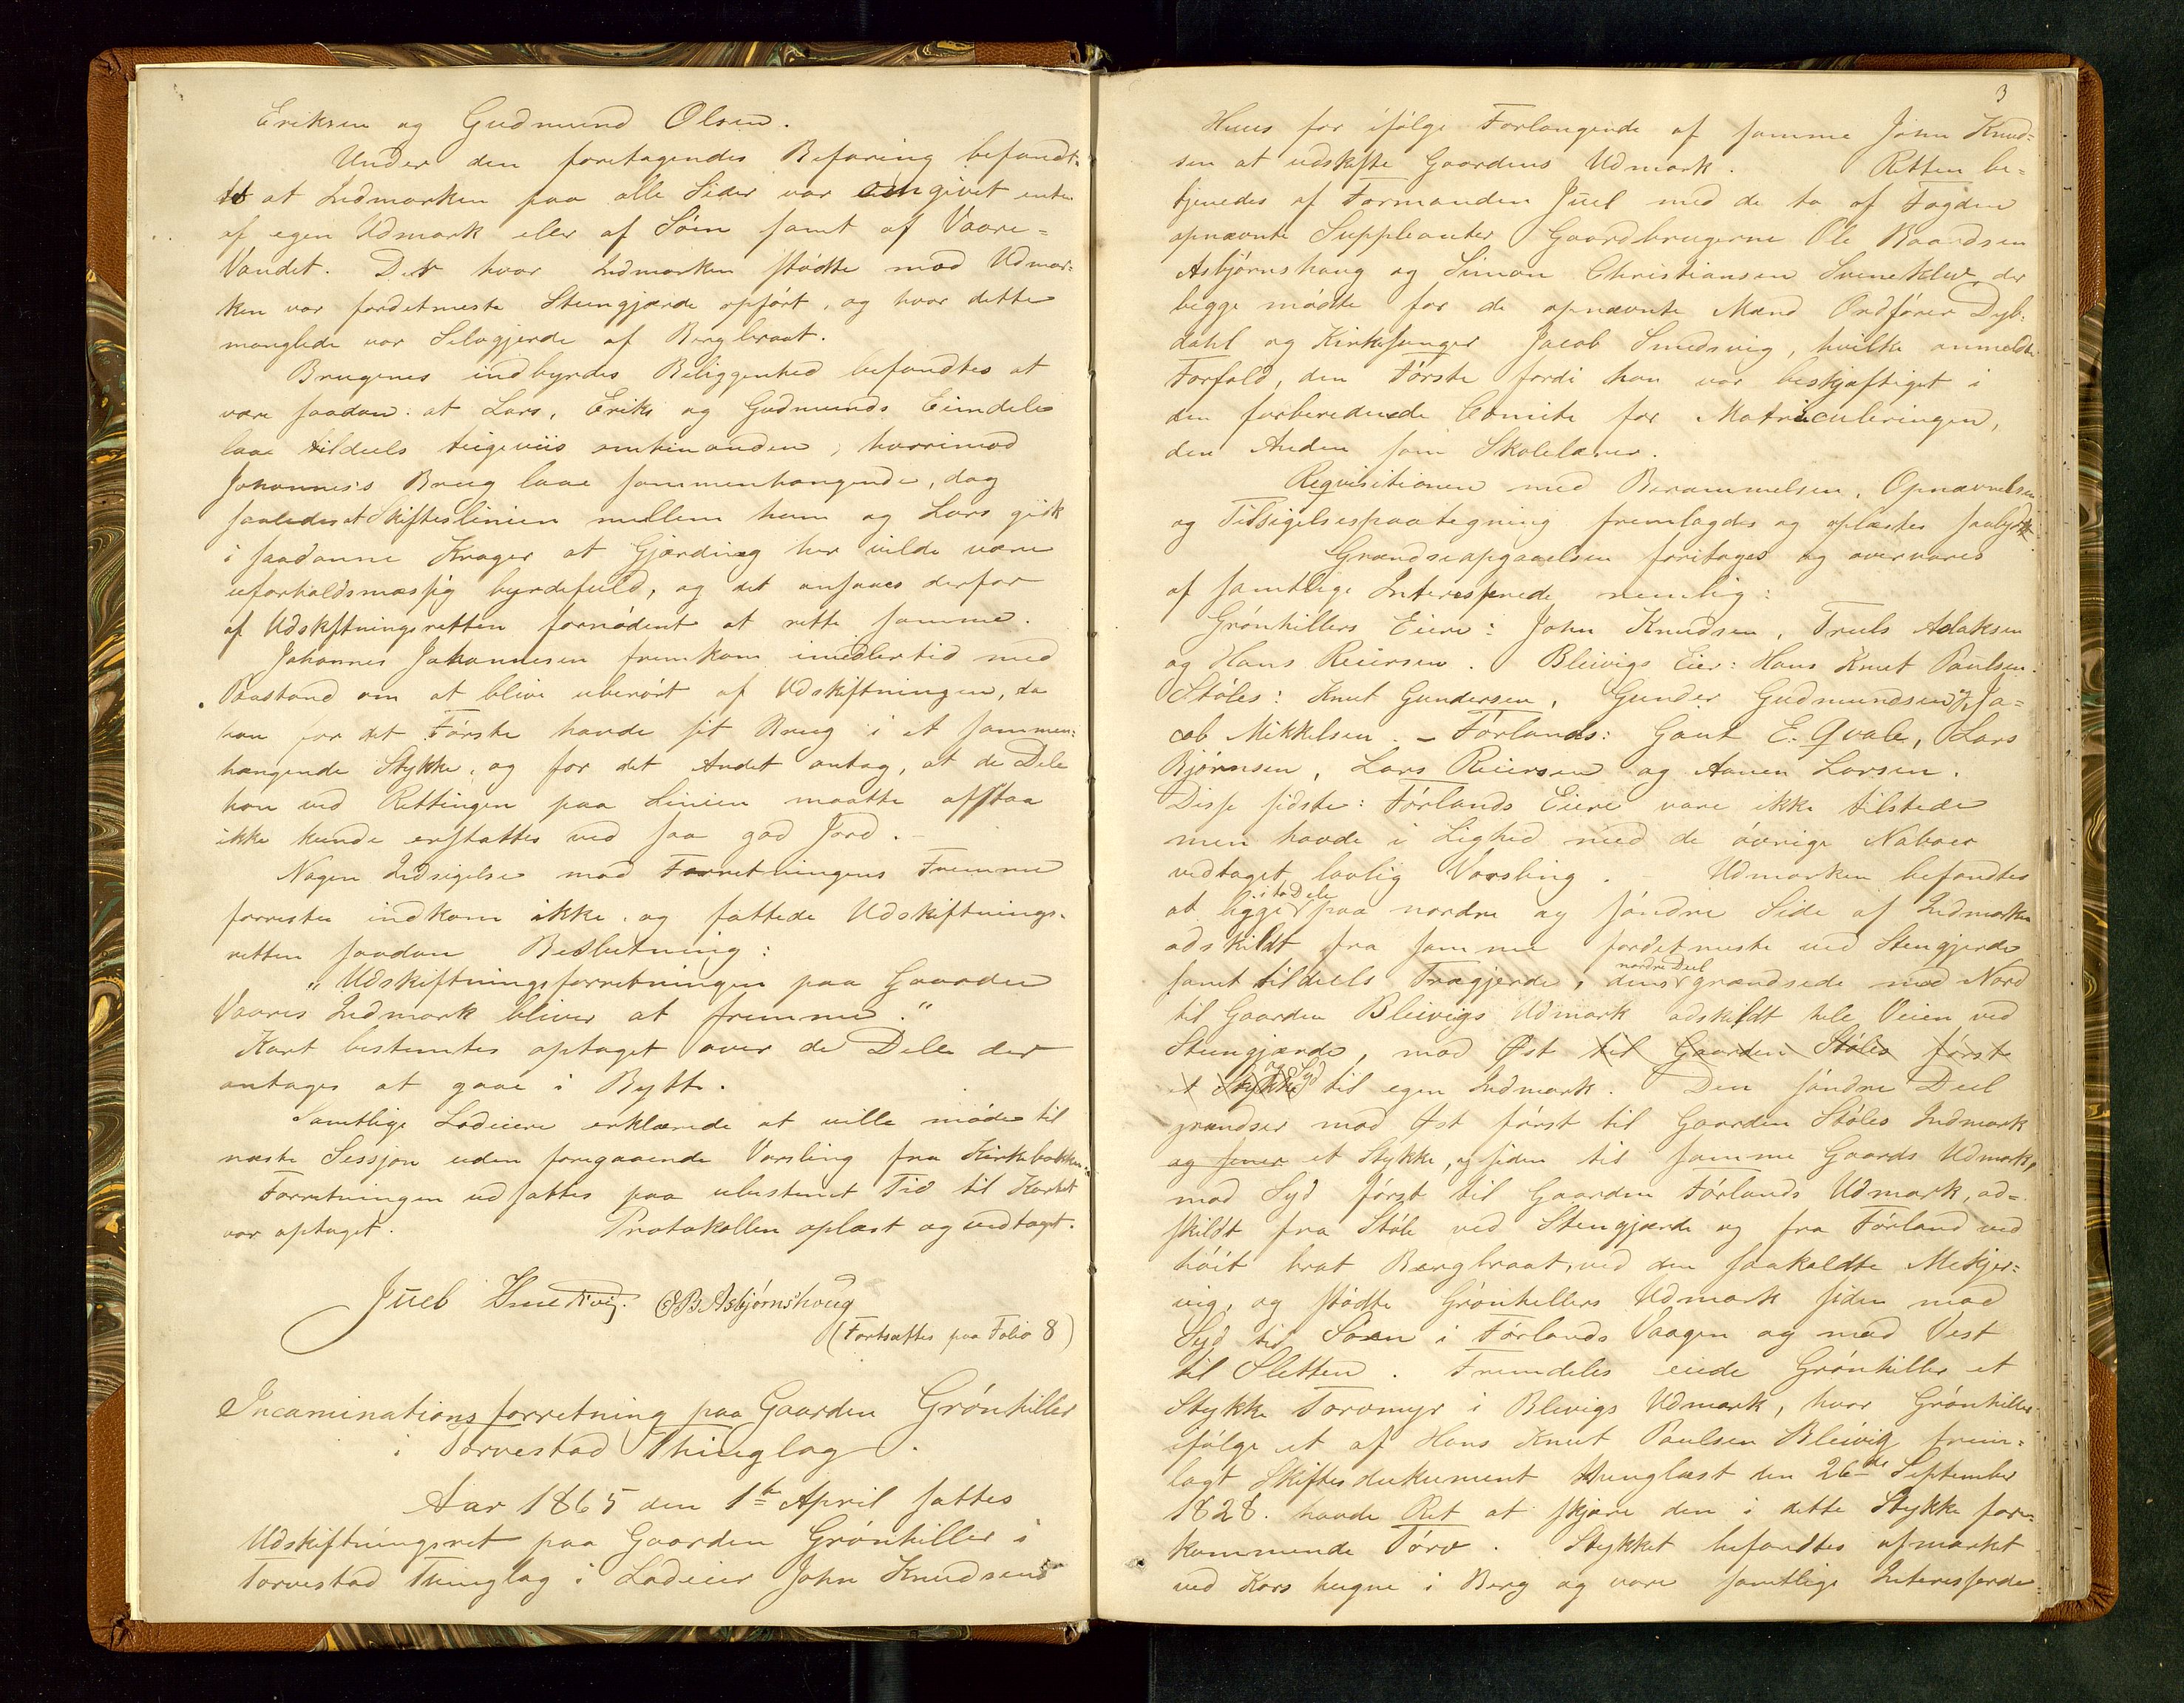 Eriksen og Gudmund Olsen.
Under den foretagendes Befaring befandt-
tes at Indmarken paa alle Sider var omgivet enten
af egen Udmark eler af Søen samt af Vaare=
Vandet. Der hvor Indmarken stødte mod Udmar-
ken var fordetmeste Steengjærde opført, og hvor dette
manglede var Selvgjerde af Bergbraat.
Brugenes indbyrdes Beliggenhed befandtes at
være saadan: at Lars, Eriks og Gudmunds Eiendele
laae tildeels teigeviis omhinanden, hvorimod
Johannes's Brug laae sammenhangende, dog
saaledes at Skifteslinien mellem ham og Lars gik
i saadanne Kroger at Gjærding her vilde være
uforholdsmæssig byrdefuld, og det ansaaes derfor
af Udskiftningsretten fornødent at rette samme.
Johannes Johannesen fremkom imedlertid med
Paastand om at blive uberørt af Udskiftningen, da
han for det Første havde sit Brug i et sammen-
hangende Stykke, og for det Andet antog, at de Dele
han ved Rettingen paa Linien maatte afstaa
ikke kunde erstattes ved saa god Jord. -
Nogen Indsigelse mod Forretningens Fremme
forresten indkom ikke, og fattede Udskiftnings-
retten saadan Beslutning:
"Udskiftningsforretningen paa Gaarden
Vaares Indmark bliver at fremme."
Kart bestemtes optaget over de Dele der
antages at gaae i Bytte.
Samtlige Lodeiere erklærede at ville møde til
næste Session uden foregaaende Varsling fra Kirkebakken.
Forretningen udsattes paa ubestemt Tid til Kartet
var optaget. Protokollen oplæst og vedtaget.
Juel Smedsvig. O B Asbjørnshoug
(Fortsættes paa Folio 8)
Incaminationsforretning paa Gaarden Grønhiller
i Torvestad Thinglag.
Aar 1865 den 1te April sattes
Udskiftningsret paa Gaarden Grønhiller i
Torvestad Thinglag i Lodeier John Knudsens
3
Huus for ifølge Forlangende af samme John Knud-
sen at udskifte Gaardens Udmark. Retten be-
tjenedes af Formanden Juel med de to af Fogden
opnævnte Suppleanter Gaardbrugerne Ole Baardsen
Asbjørnshaug og Simon Christiansen Svineklev der
begge mødte for de opnævnte Mænd Ordfører Dyb-
dahl og Kirkesanger Jacob Smedsvig, hvilke anmeldte
Forfald, den Første fordi han var beskjæftiget i
den forberedende Comite for Matriculeringen,
den Anden som Skolelærer.
Reqvisitionen med Berammelsen, Opnævnelsen
og Tilsigelsespaategning fremlagdes og oplæstes saalyd
Grændseopgaaelsen foretoges og overvares
af samtlige Interesserede nemlig:
Grønhillers Eiere: John Knudsen, Truls Aslaksen
og Hans Reiersen. Bleivigs Eier: Hans Knut Paulsen.
Støles: Knut Gundersen, Gunder Gudmundsen og Ja-
cob Mikkelsen. - Førlands: Gaut E. Qvale, Lars
Bjørnsen, Lars Reiersen og Aanen Larsen.
Disse sidste: Førlands Eiere vare ikke tilstede
men havde i Lighed med de øvrige Naboer
vedtaget lovlig Varsling. - Udmarken befandtes
at ligge i to Dele paa nordre og søndre Side af Indmarken
adskildt fra samme fordetmeste ved Steengjerde
samt tildeels Trægjerde, dens nordre Deel grændsede mod Nord
til Gaarden Bleivigs Udmark adskildt hele Veien ved
Steengjærde, mod Øst til Gaarden Støles først
et Stykke og Syd til egen Indmark. Den søndre Deel
grændser mod Øst først til Gaarden Støles Indmark
og siden et Stykke, og siden til samme Gaards Udmark,
mod Syd først til Gaarden Førlands Udmark, ad-
skildt fra Støle ved Steengjærde og fra Førland ved
høit brat Bergbraat, ved den saakaldte Mekjer-
vig, og stødte Grønhillers Udmark siden mod
Syd til Søen i Førlands Vaagen og mod Vest
til Sletten. Fremdeles eiede Grønhiller et
Stykke Torvmyr i Blivigs Udmark, hvor Grønhiller
ifølge et af Hans Knut Paulsen Bleivig frem-
lagt Skiftesdokument thinglæst den 26de September
1828. havde Ret at skjære den i dette Stykke fore-
kommende Tørv. Stykket befandtes afmærket
ved Kors hugne i Berg og vare samtlige Interesserede